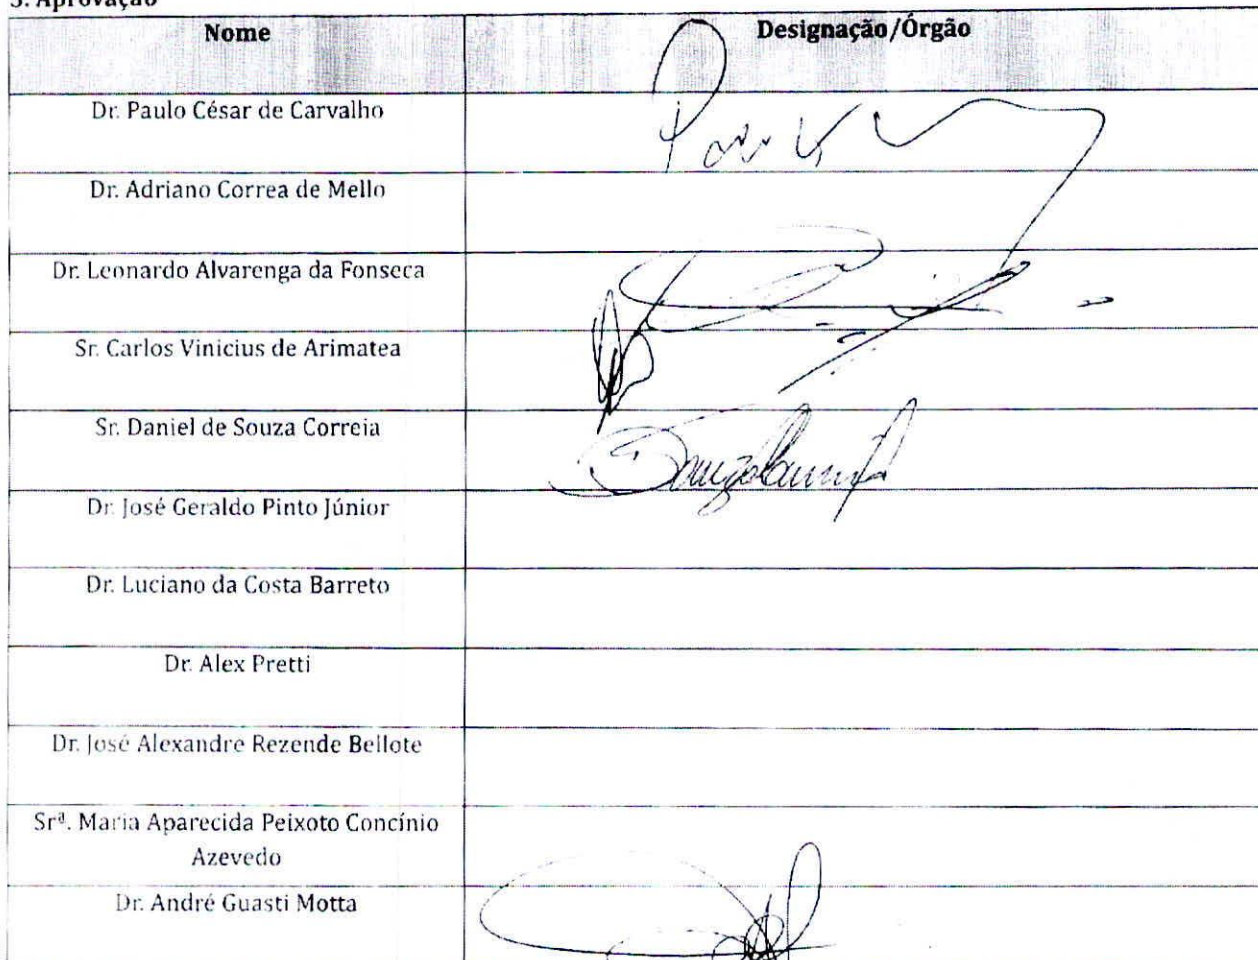 3. Aprovação
Nome
Designação/Órgão
Dr. Paulo César de Carvalho
Dr. Adriano Correa de Mello
Dr. Leonardo Alvarenga da Fonseca
Sr. Carlos Vinicius de Arimatea
Sr. Daniel de Souza Correia
Dr. José Geraldo Pinto Júnior
Dr. Luciano da Costa Barreto
Dr. Alex Pretti
Dr. José Alexandre Rezende Bellote
Srª. Maria Aparecida Peixoto Concínio
Azevedo
Dr. André Guasti Motta